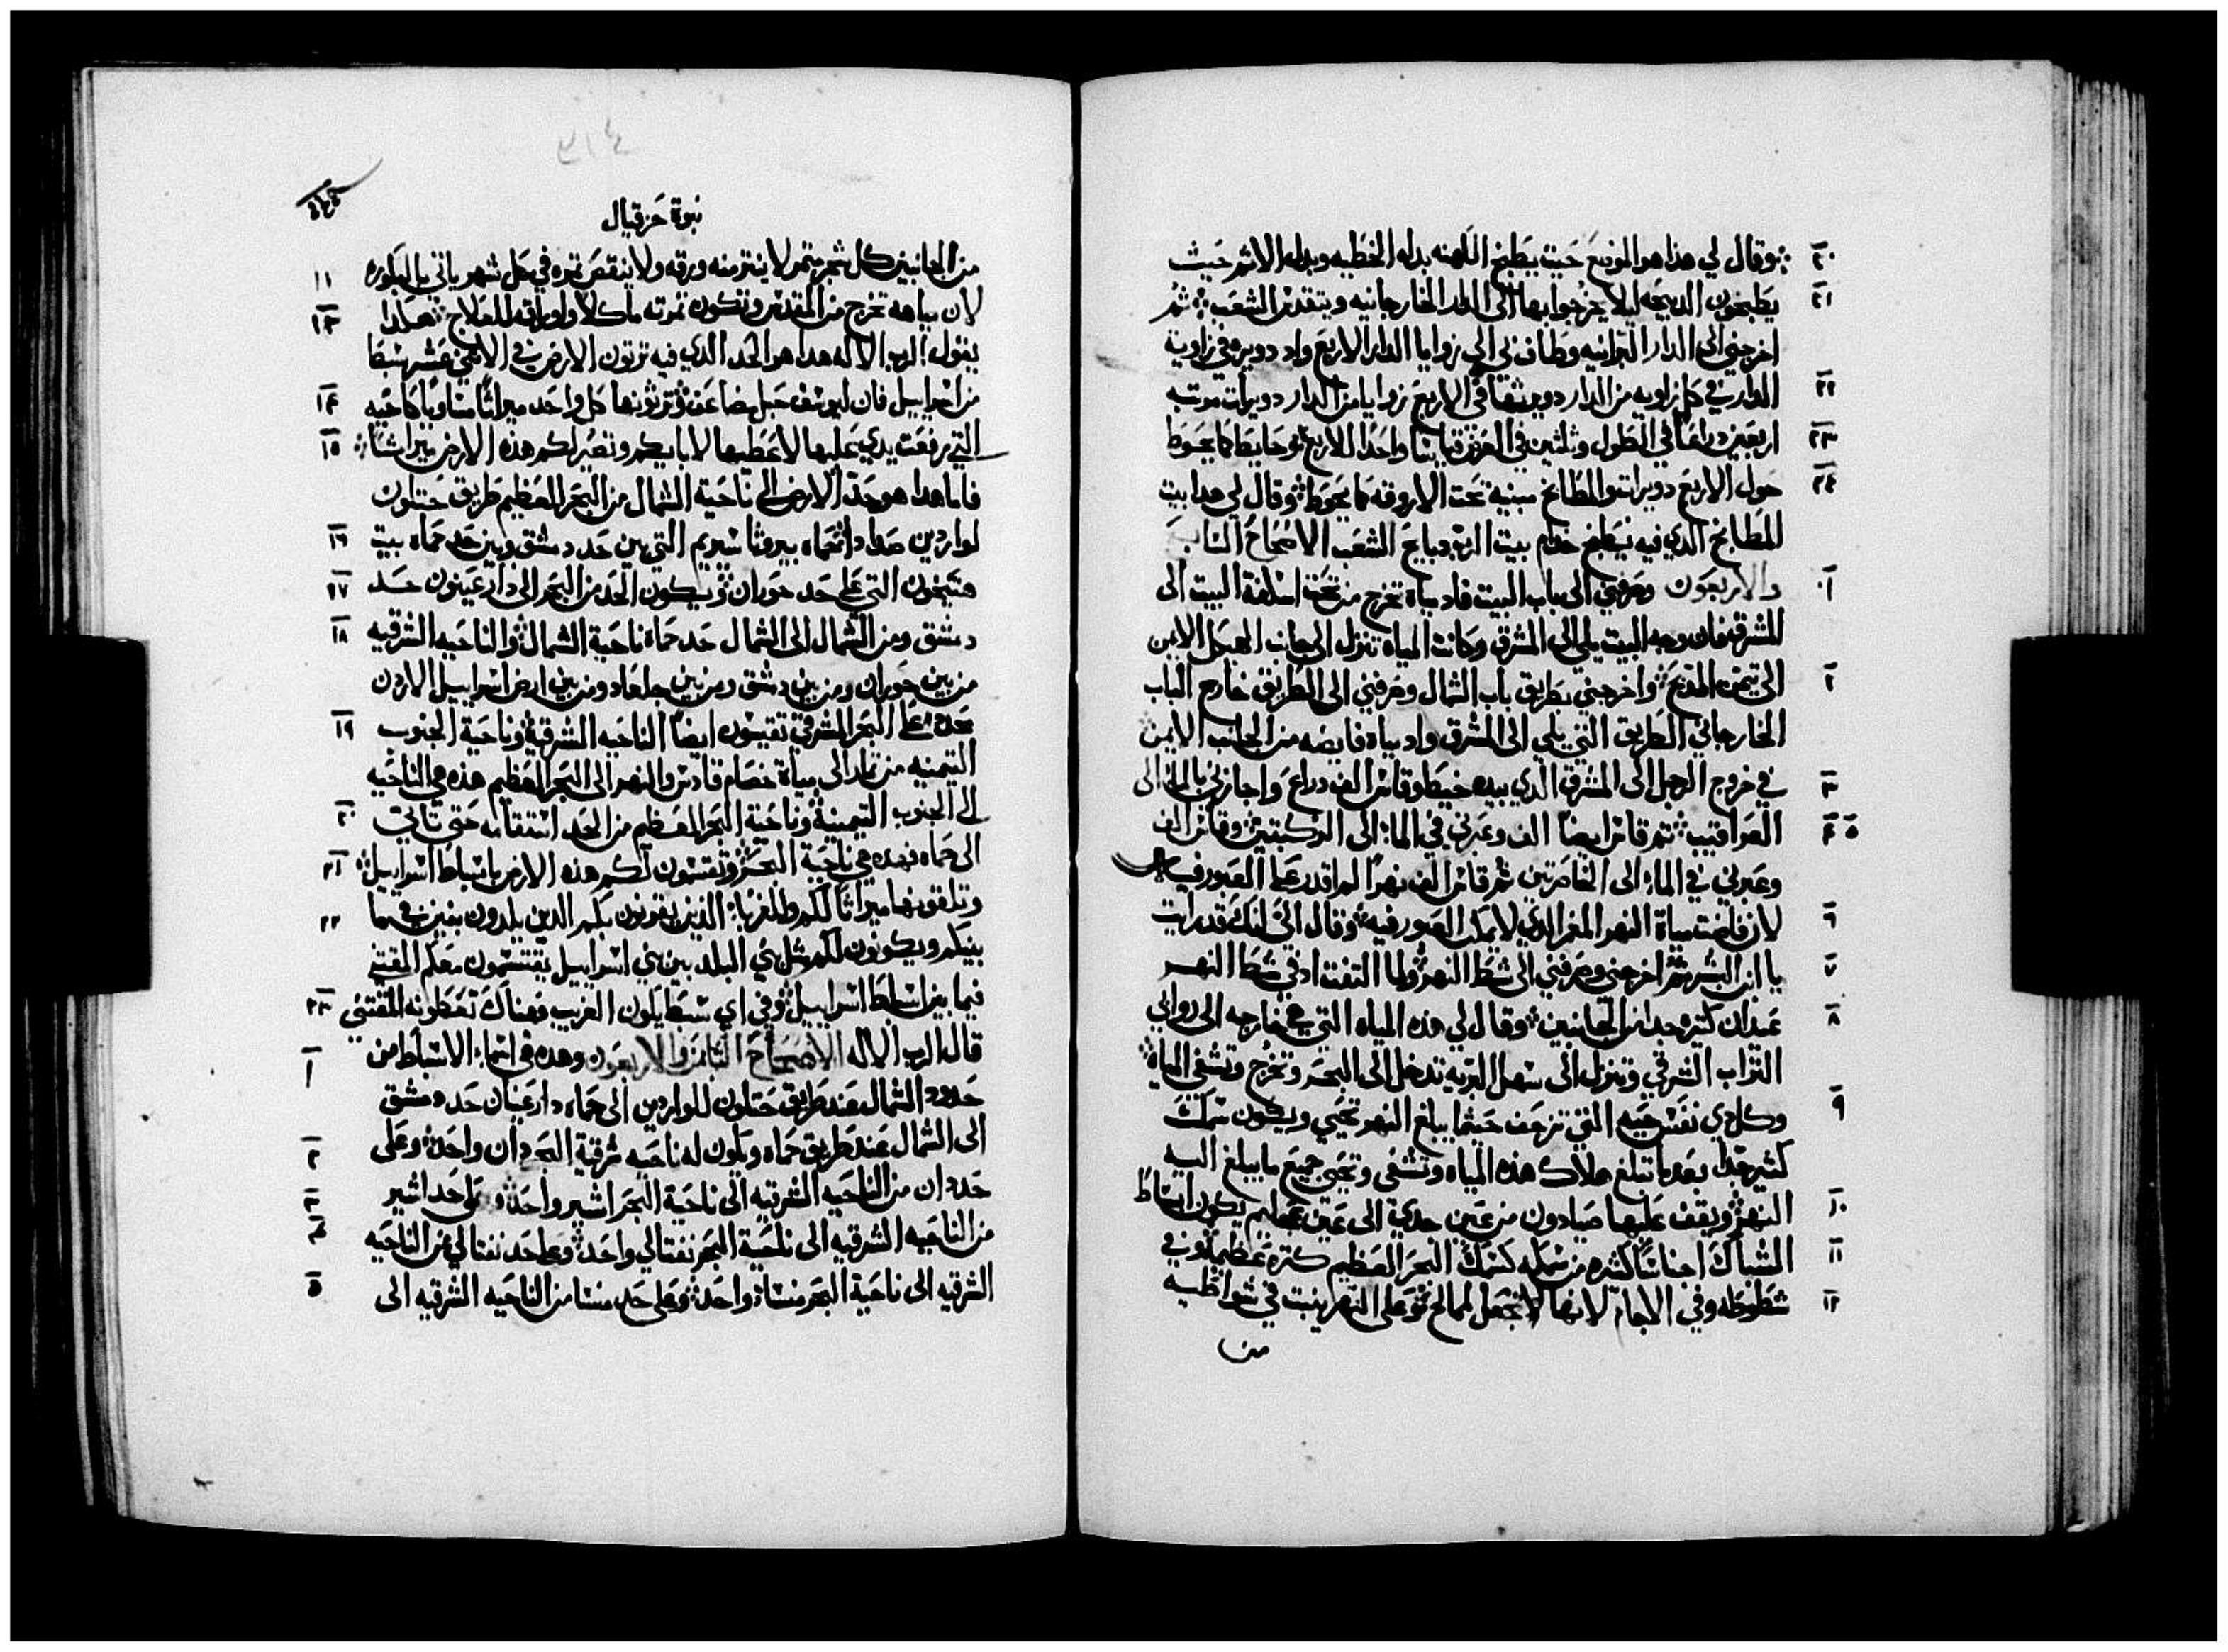 وقال لي هذا هو الموضع حيث يطبخ الكهنه بدل الخطيه وبدل الاثم حيث
يطبخون الدبيحه ليلا يخرجوا بها الى الدار الخارجانيه ويتقدس الشعب ثم
اخرجني الى الدار البرانيه وطاف بي الى زوايا الدار الاربع واد دويره في زاوية
الدار في كل زاويه من الدار دويره في الاربع زوايا من الدار دويرات مرتبه
اربعين دراعا في الطول وثلثين في العرض قياسا واحدا للاربع وحايطا كما يحوط
حول الاربع دويرات والمطابخ مبنية تحت الاروقه كما يحوط وقال لي هدا بيت
المطابخ الدي فيه يطبخ خدام بيت الرب دبايح الشعب الاصحاح السابع
والاربعون وصرفني الى باب البيت فاد مياه تخرج من تحت اسكفة البيت الى
المشرق فان وجه البيت يلي الى المشرق وكانت المياه تنزل الى جانب الهيكل الايمن
الى تيمن المدبح واخرجني بطريق باب الشمال وصرفني الى الطريق خارج الباب
الخارجاني الطريق التي يلي الى المشرق واد مياه فايضه من الجانب الايمن
في خروج الرجل الى المشرق الدي بيده خيط وقاس الف دراع واجازني بالما الى
العراقيب ثم قاس ايضا الف وعبرني في الماء الى الركبتين وقاس الف
وعبرني في الماء الى الخاصرتين ثم قاس الف نهرا لم اقدر على العبور فيه
لان فاضت مياة النهر المغر الدي لا يمكن العبور فيه وقال الي انك قد رايت
يا ابن البشر ثم اخرجني وصرفني الى شط النهر ولما التفت اد في شط النهر
عيدان كثيره جدا من الجانبين وقال لي هذه المياه التي هي خارجه الى روابي
التراب الشرقي وتنزل الى سهل البريه تدخل الى البحر وتخرج وتشفى المياة
وكل دي نفس حيه التي تزحف حيثما يبلغ النهر تحيي ويكون سمك
كثير جدا بعد ما تبلغ هناك هذه المياه وتشفى وتحيى جميع ما يبلغ اليه
النهر ويقف عليها صيادون من عين جدي الى عين عجليم يكون انبساط
الشباك اجناسا كثيره من سمكه كسمك البحر العظيم كثرة عظيمة وفي
شطوطه وفي الاجام لانها تجعل لممالح وعلى النهر ينبت في شواطيه
من
نبوة حزقيال
من الجانبين كل شجر مثمر لا ينتر منه ورقه ولا ينقص ثمره في كل شهر ياتي بالبكوره
لان مياهه تخرج من المقدس وتكون ثمرته ماكلا واوراقه للعلاج هكدا
يقول الرب الاله هدا هو الحد الدي فيه ترثون الارض في الاثني عشر سبطا
من اسراييل فان ليوسف حبل مضاعف وترثونها كل واحد ميراثا متساويا كاخيه
التي رفعت يدي عليها لاعطيها لابايكم وتصير لكم هذه الارض ميراثا
فاما هدا هو حد الارض الى ناحية الشمال من البحر العظيم طريق حتلون
لواردين صداد حماه بيروثا سبريم التي بين حد دمشق وبين حد حماه بيت
هتيخون التي على حد حوران ويكون الحد من البحر الى دار عينون حد
دمشق ومن الشمال الى الشمال حد حماة ناحية الشمال والناحيه الشرقيه
من بين حوران ومن بين دمشق ومن بين جلعاد ومن بين ارض اسراييل الاردن
حده على البحر الشرقي تقيسون ايضا الناحيه الشرقية وناحية الجنوب
التيمنيه من تامار الى مياة خصام قادس والنهر الى البحر العظيم هذه هي الناحيه
الى الجنوب التيمنية وناحية البحر العظيم من الحد استقامه حتى تاتي
الى حماه فهده هي ناحية البحر وتقتسمون لكم هذه الارض باسباط اسراييل
وتلقونها ميراثا لكم وللغربا الذين يقوتون بكم الدين يلدون بنين فيما
بينكم ويكونون لكم مثل دي البلد بين بني اسراييل يقتسمون معكم المقتني
فيما بين اسباط اسراييل وفي اي سبط يكون الغريب فهناك تعطونه المقتني
قال الرب الاله الاصحاح الثامن والاربعون وهده هي اسماء الاسباط من
حدود الشمال عند طريق حتلون للواردين الى حماه دار عينان حد دمشق
الى الشمال عند طريق حماه ويكون له ناحيه شرقية البحر دان واحد وعلى
حد دان من الناحيه الشرقيه الى ناحية البحر اشير واحد وعلى حد اشير
من الناحيه الشرقيه الى ناحية البحر نفتالي واحد وعلى حد نفتالي من الناحيه
الشرقيه الى ناحية البحر منساة واحد وعلى حد منسا من الناحيه الشرقيه الى